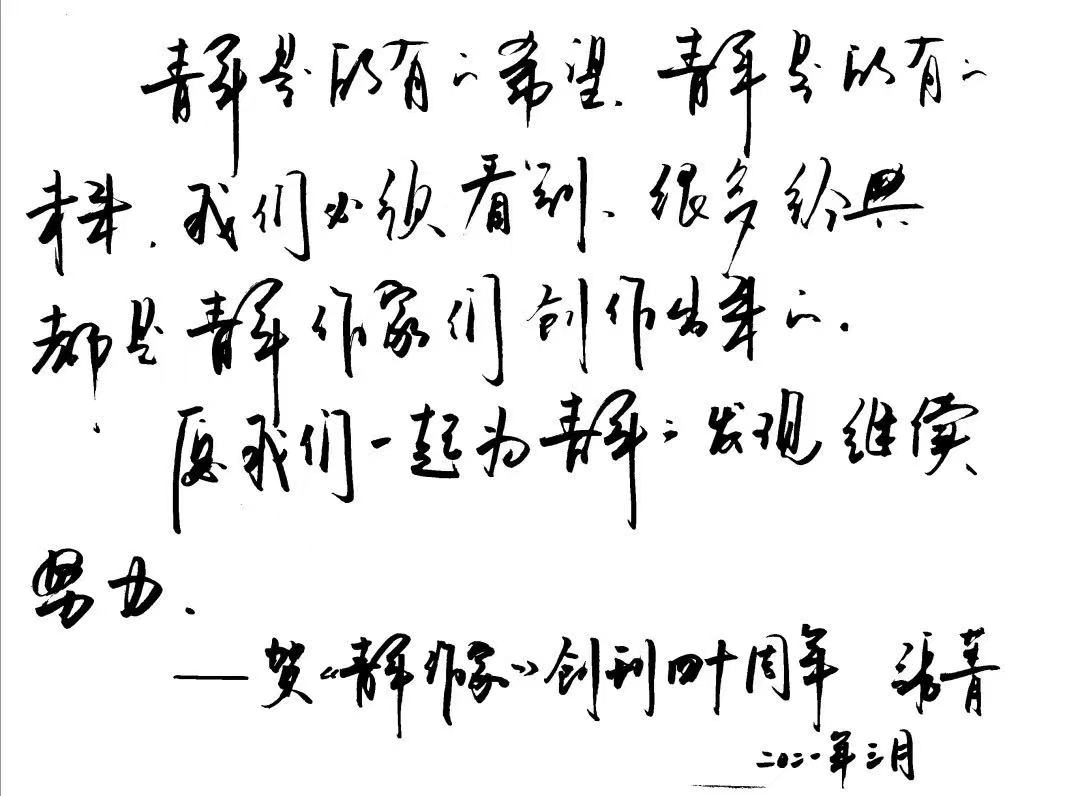 青年是所有的希望，青年是所有的
未来，我们必须看到，很多经典
都是青年作家们创作出来的。
愿我们一起为青年的发现继续
努力。
——贺《青年作家》创刊四十周年 张菁
二〇二一年三月